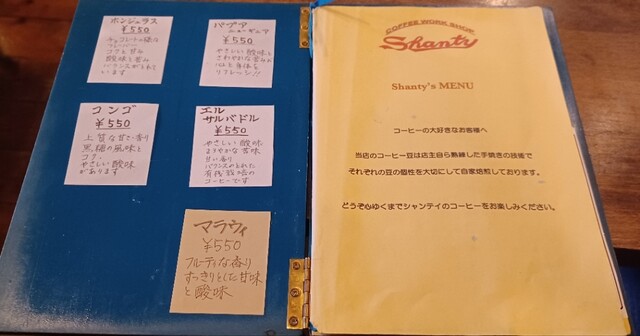 ホンジュラス
¥550
チョコレートの様な
フレーバー
コクと甘み
酸味と苦み
バランスがとれて
います
パプア
ニューギニア
¥550
やさしい酸味と
さわやかな苦みが
心と身体を
リフレッシュ!!
コンゴ
¥550
上質な甘で香り
黒糖の風味と
コク
やさしい酸味
があります
エル
サルバドル
¥550
やさしい酸味
まろやかな苦味
甘い香り
バランスのとれた
有機栽培の
コーヒーです
マラウィ
¥550
フルーティな香り
すっきりとした甘味
と酸味
COFFEE WORK SHOP
Shanty
Shanty's MENU
コーヒーの大好きなお客様へ
当店のコーヒー豆は店主自ら熟練した手焼きの技術で
それぞれの豆の個性を大切にして自家焙煎しております。
どうぞ心ゆくまでシャンティのコーヒーをお楽しみください。